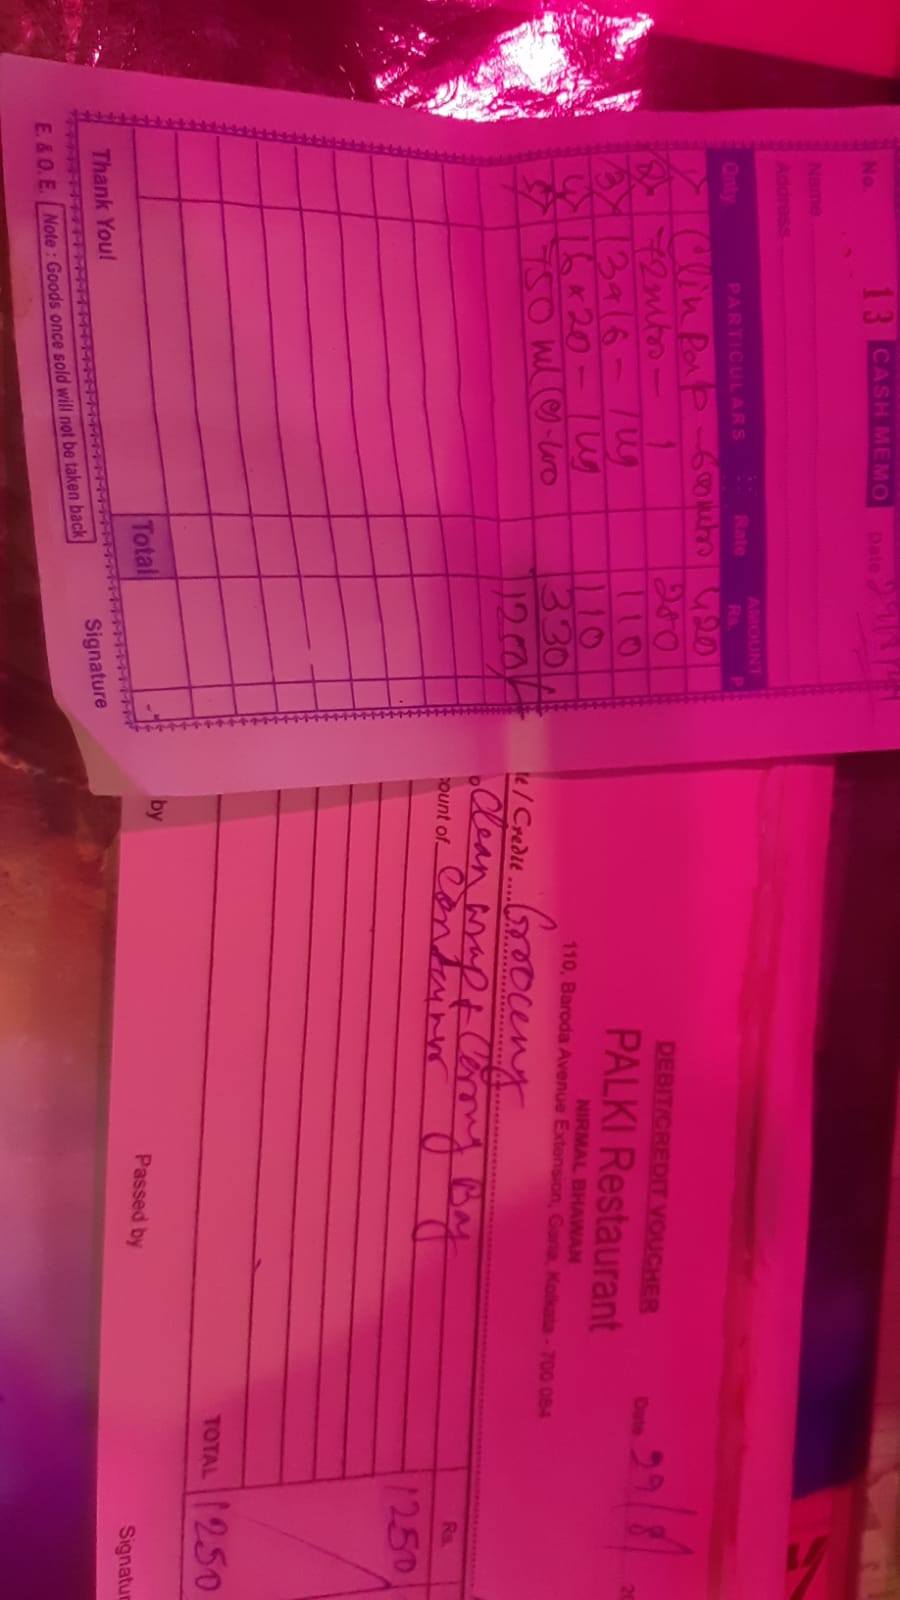 No. 13 CASH MEMO Date
Name
Address
Only PARTICULARS Rate AMOUNT
Rs. P
1) Clin 420
2) 72 1 280
3) 13916 - 1 kg 110
4) 16x20 - 1 kg 110
5) 750 ml 330
Total
Thank You! Signature
E. & O. E. Note : Goods once sold will not be taken back
DEBIT/CREDIT VOUCHER
PALKI Restaurant Date 29/8
NIRMAL BHAWAN
110, Baroda Avenue Extension, Garia, Kolkata - 700 084
te / Credit Groceny
o Clean wrap + Carry Bag
ount of Container Rs.
1250
TOTAL 1250
by Passed by Signatur